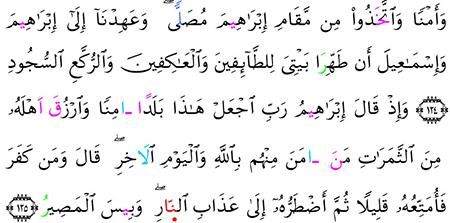 وَأَمْنًا وَٱتَّخَذُواْ مِن مَّقَامِ إِبْرَٰهِيمَ مُصَلًّى ۖ وَعَهِدْنَآ إِلَىٰٓ إِبْرَٰهِيمَ
وَإِسْمَٰعِيلَ أَن طَهِّرَا بَيْتِىْ لِلطَّآئِفِينَ وَٱلْعَٰكِفِينَ وَٱلرُّكَّعِ ٱلسُّجُودِ
١٢٤ وَإِذْ قَالَ إِبْرَٰهِيمُ رَبِّ ٱجْعَلْ هَٰذَا بَلَدًا ـامِنًا وَٱرْزُقَ اَهْلَهُۥ
مِنَ ٱلثَّمَرَٰتِ مَنَ ـامَنَ مِنْهُم بِٱللَّهِ وَٱلْيَوْمِ ٱلَاخِرِ ۖ قَالَ وَمَن كَفَرَ
فَأُمَتِّعُهُۥ قَلِيلًا ثُمَّ أَضْطَرُّهُۥٓ إِلَىٰ عَذَابِ ٱلنَّارِ ۖ وَبِيسَ ٱلْمَصِيرُ ١٢٥